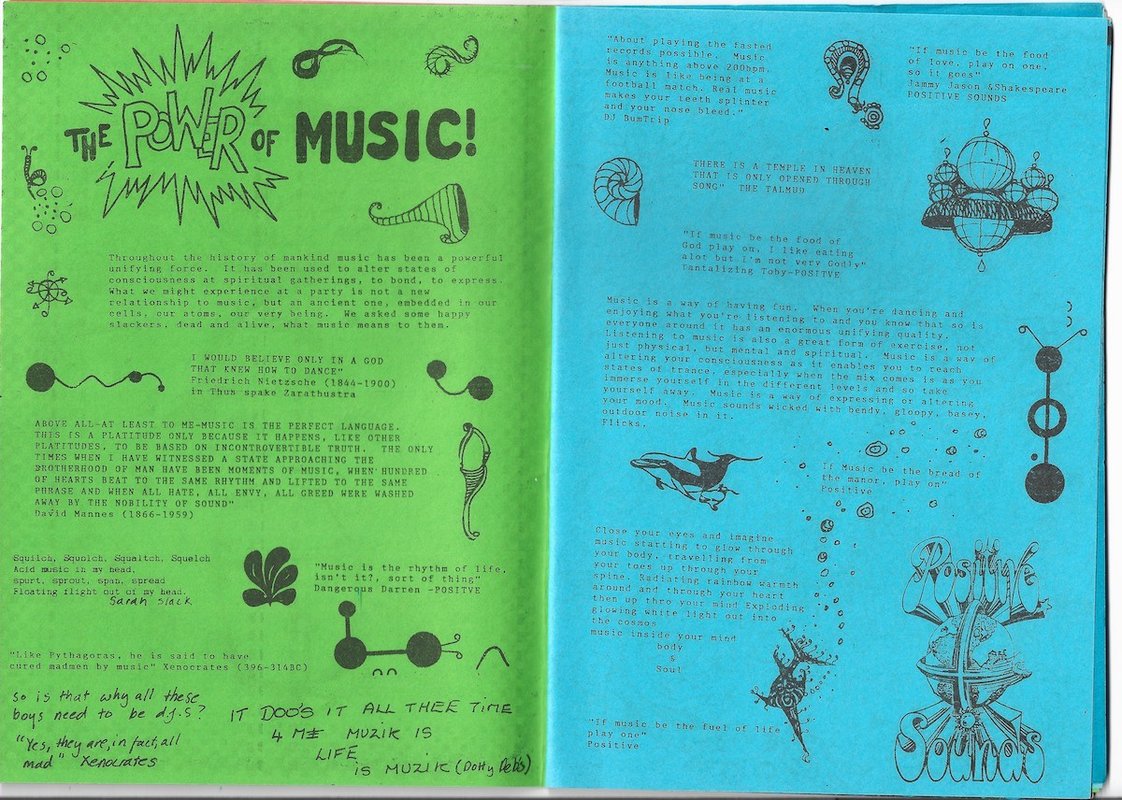 THE POWER OF MUSIC!
Throughout the history of mankind music has been a powerful
unifying force. It has been used to alter states of
consciousness at spiritual gatherings, to bond, to express.
What we might experience at a party is not a new
relationship to music, but an ancient one, embedded in our
cells, our atoms, our very being. We asked some happy
slackers, dead and alive, what music means to them.
I WOULD BELIEVE ONLY IN A GOD
THAT KNEW HOW TO DANCE"
Friedrich Nietzsche (1844-1900)
in Thus spake Zarathustra
ABOVE ALL-AT LEAST TO ME-MUSIC IS THE PERFECT LANGUAGE.
THIS IS A PLATITUDE ONLY BECAUSE IT HAPPENS, LIKE OTHER
PLATITUDES, TO BE BASED ON INCONTROVERTIBLE TRUTH. THE ONLY
TIMES WHEN I HAVE WITNESSED A STATE APPROACHING THE
BROTHERHOOD OF MAN HAVE BEEN MOMENTS OF MUSIC, WHEN HUNDRED
OF HEARTS BEAT TO THE SAME RHYTHM AND LIFTED TO THE SAME
PHRASE AND WHEN ALL HATE, ALL ENVY, ALL GREED WERE WASHED
AWAY BY THE NOBILITY OF SOUND"
David Mannes (1866-1959)
Squilch, Squolch, Squaltch, Squelch
Acid music in my head,
spurt, sprout, span, spread
Floating flight out of my head.
Sarah Slack
"Music is the rhythm of life,
isn't it?, sort of thing"
Dangerous Darren -POSITVE
"Like Pythagoras, he is said to have
cured madmen by music" Xenocrates (396-314BC)
so is that why all these
boys need to be d.j.s?
"Yes, they are, in fact, all
mad" Xenocrates
IT DOO'S IT ALL THEE TIME
4 ME MUZIK IS
LIFE
IS MUZIK (Dotty Deb's)
"About playing the fasted
records possible. Music
is anything above 200bpm.
Music is like being at a
football match. Real music
makes your teeth splinter
and your nose bleed."
DJ BumTrip
"If music be the food
of love, play on one,
so it goes"
Jammy Jason &Shakespeare
POSITIVE SOUNDS
THERE IS A TEMPLE IN HEAVEN
THAT IS ONLY OPENED THROUGH
SONG" THE TALMUD
"If music be the food of
God play on, I like eating
alot but I'm not very Godly"
Tantalizing Toby-POSITVE
Music is a way of having fun. When you're dancing and
enjoying what you're listening to and you know that so is
everyone around it has an enormous unifying quality.
Listening to music is also a great form of exercise, not
just physical, but mental and spiritual. Music is a way of
altering your consciousness as it enables you to reach
states of trance, especially when the mix comes is as you
immerse yourself in the different levels and so take
yourself away. Music is a way of expressing or altering
your mood. Music sounds wicked with bendy, gloopy, basey,
outdoor noise in it.
Flicks.
If Music be the bread of
the manor, play on"
Positive
Close your eyes and imagine
music starting to glow through
your body, travelling from
your toes up through your
spine. Radiating rainbow warmth
around and through your heart
then up thro your mind Exploding
glowing white light out into
the cosmos
music inside your mind
body
&
Soul
"If music be the fuel of life
play one"
Positive
Positive
Sounds